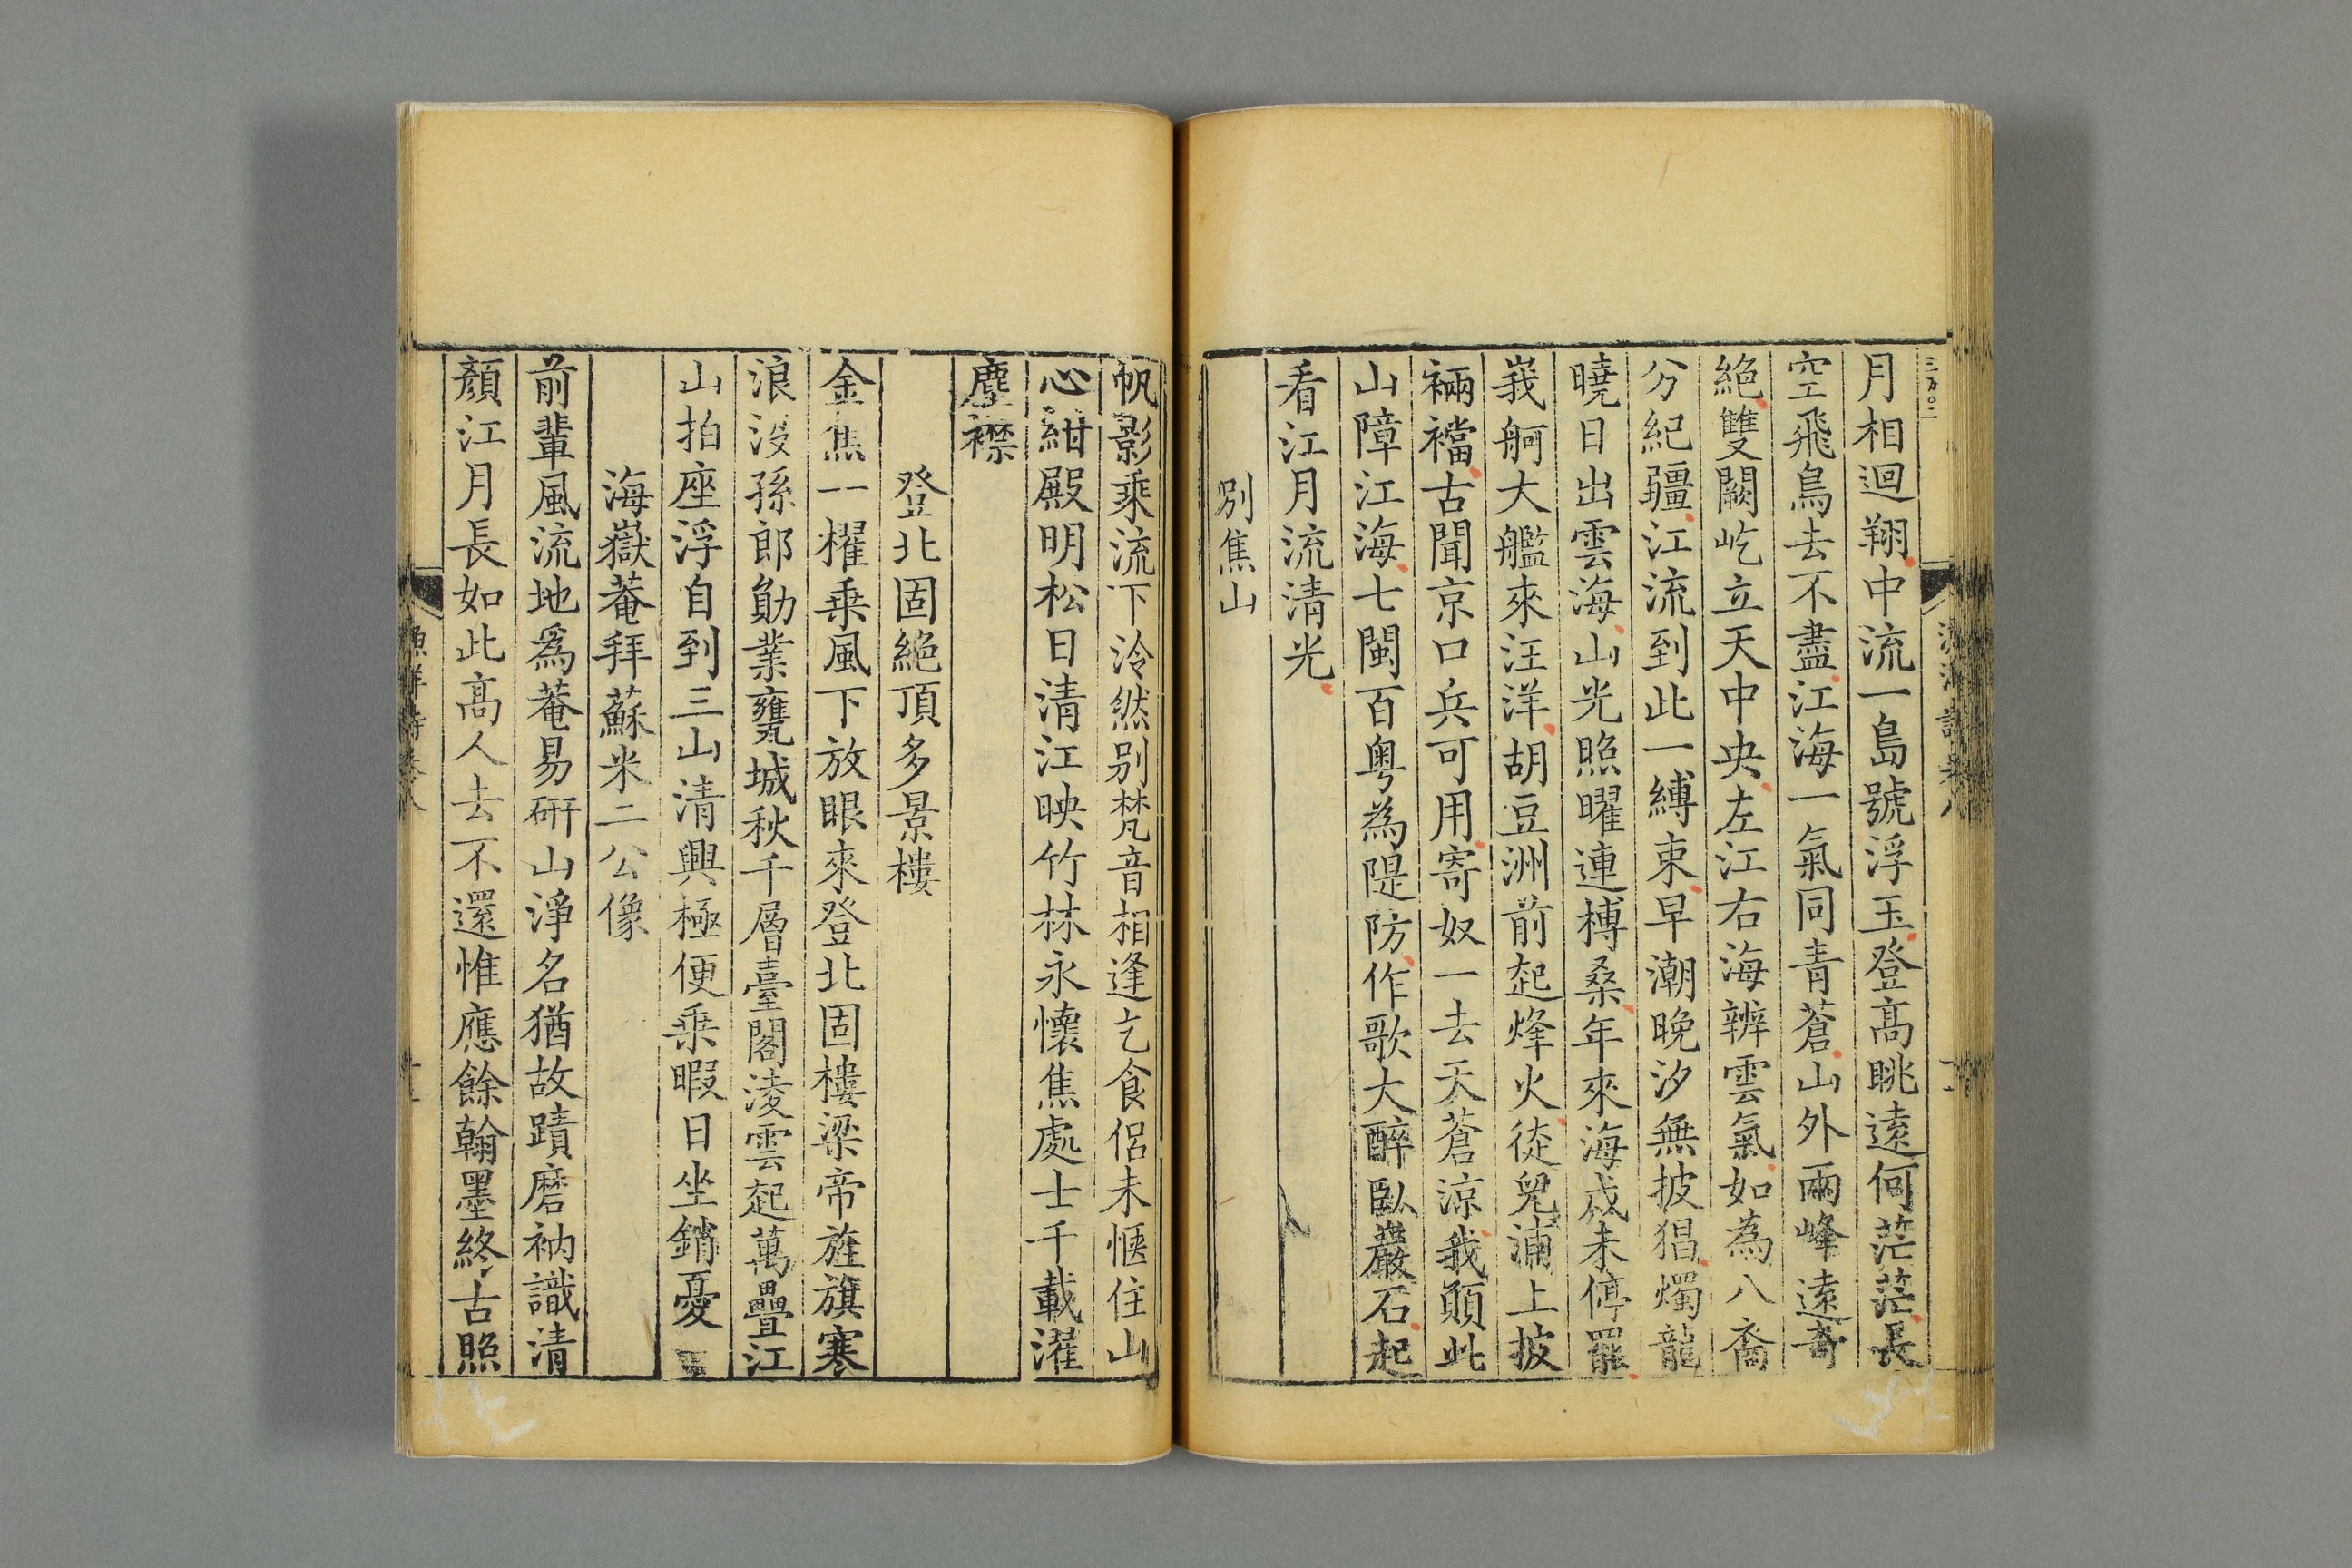 月相迴翔中流一島號浮玉登高眺遠何茫茫長
空飛鳥去不盡江海一氣同青蒼山外兩峰遠奇
絕雙闕屹立天中央左江右海辨雲氣如為八裔
分紀疆江流到此一縛束早潮晚汐無披猖燭龍
曉日出雲海山光照曜連榑桑年來海戍未停罷
峩舸大艦來汪洋胡豆洲前起烽火從兒浦上披
裲襠古聞京口兵可用寄奴一去天蒼涼我願此
山障江海七閩百粤為隄防作歌大醉臥巖石起
看江月流清光
別焦山
帆影乘流下泠然別梵音相逢乞食侶未愜住山
心紺殿明松日清江映竹林永懷焦處士千載濯
塵襟
登北固絕頂多景樓
金焦一櫂乗風下放眼來登北固樓梁帝旌旗寒
浪没孫郎勛業甕城秋千層臺閣淩雲起萬疊江
山拍座浮自到三山清興極便乗暇日坐銷憂
海嶽菴拜蘇米二公像
前輩風流地爲菴易硏山淨名猶故蹟磨衲識清
顏江月長如此高人去不還惟應餘翰墨終古照
漁洋詩卷八